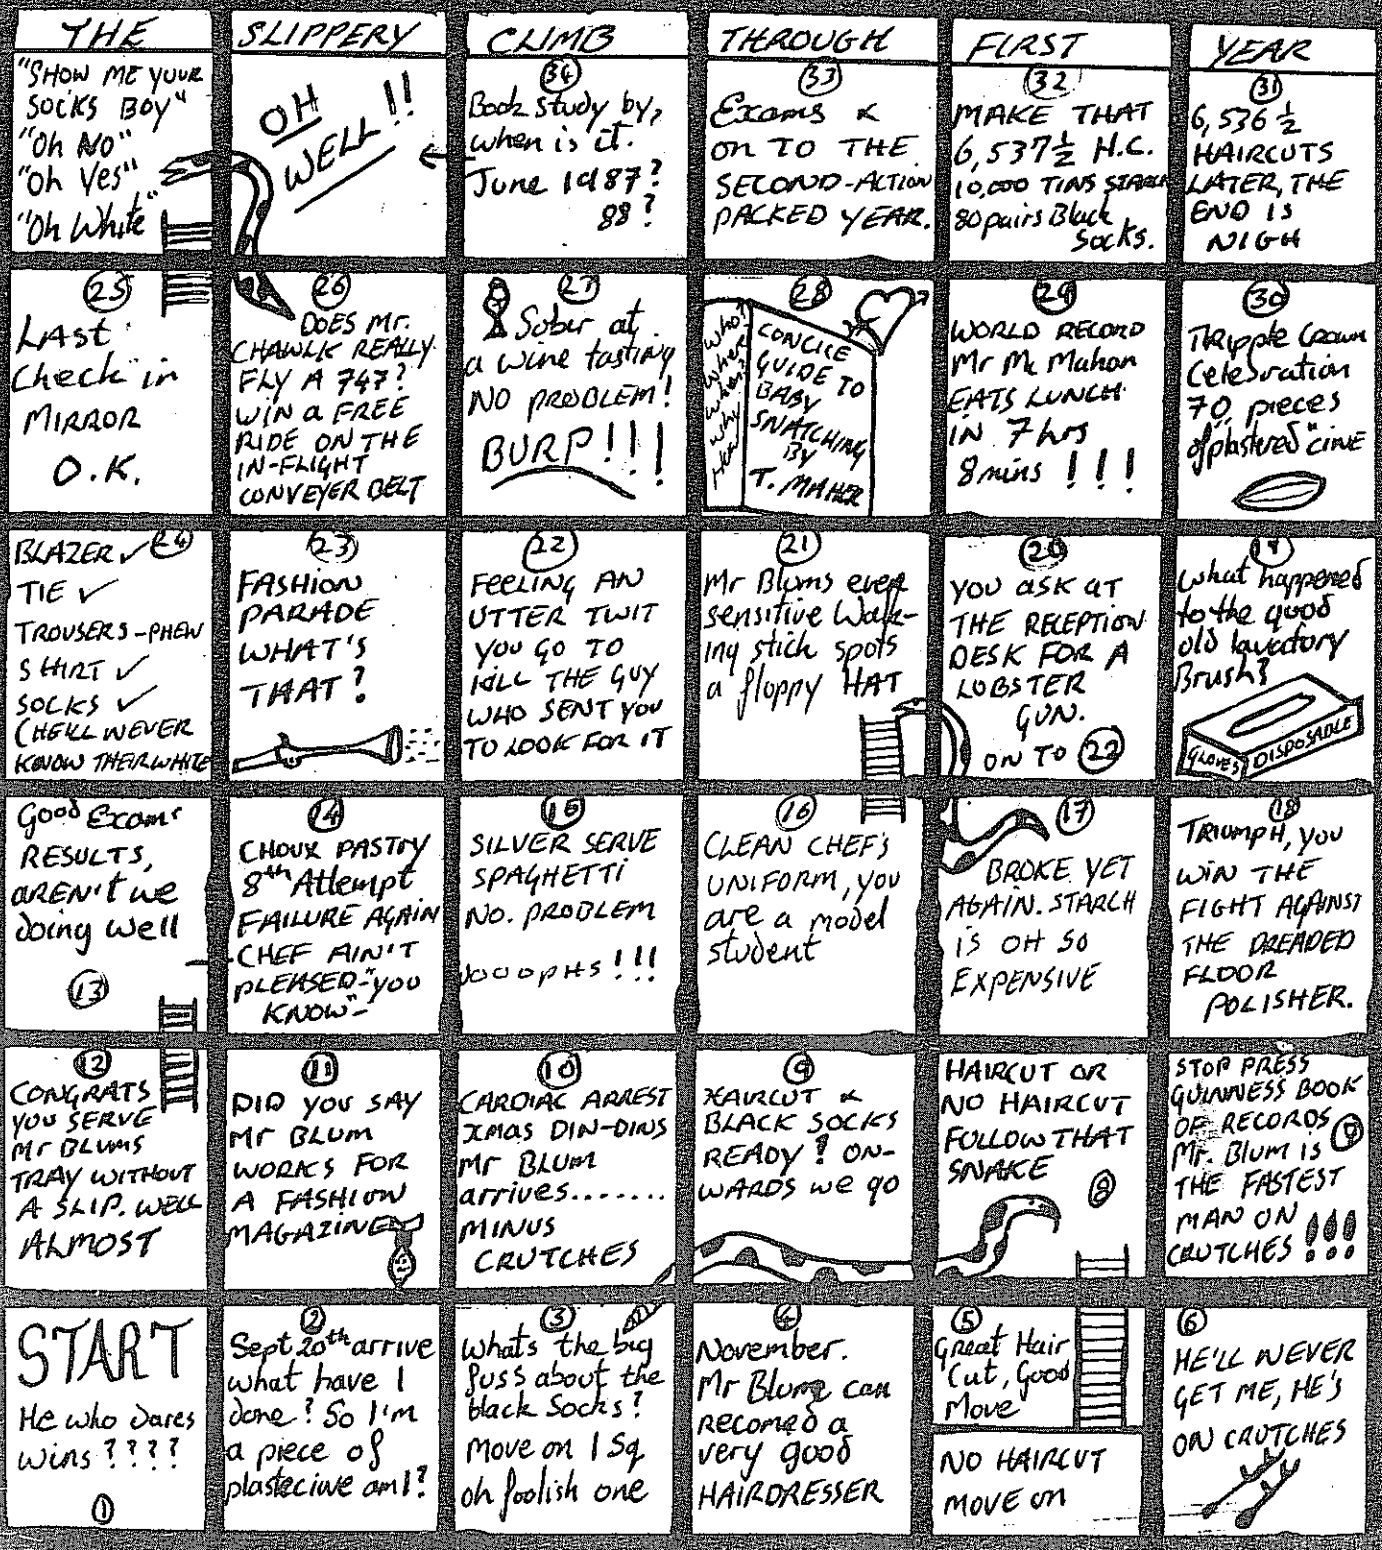 THE SLIPPERY CLIMB THROUGH FIRST YEAR
"SHOW ME YOUR
SOCKS BOY"
"Oh No"
"Oh Yes"
"Oh White"
OH
WELL!!
34
Book study by,
when is it.
June 1987?
88?
33
Exams &
ON TO THE
SECOND-ACTION
PACKED YEAR.
32
MAKE THAT
6,537½ H.C.
10,000 TINS STARCH
80 pairs Black
Socks.
31
6,536½
HAIRCUTS
LATER, THE
END IS
NIGH
25
LAST
Check in
MIRROR
O.K.
26
DOES Mr.
CHAWLK REALLY
FLY A 747?
WIN a FREE
RIDE ON THE
IN-FLIGHT
CONVEYER BELT
27
Sober at
a wine tasting
NO PROBLEM!
BURP!!!
28
Who?
Where?
When?
Why
How
CONCISE
GUIDE TO
BABY
SNATCHING
BY
T. MAHER
29
WORLD RECORD
Mr Mc Mahon
EATS LUNCH
IN 7 hrs
8 mins !!!
30
Tripple Crown
Celebration
70 pieces
of "plastered" cine
BLAZER ✓ 24
TIE ✓
TROUSERS - PHEW
SHIRT ✓
SOCKS ✓
(HE'LL NEVER
KNOW THEIR WHITE
23
FASHION
PARADE
WHAT'S
THAT?
22
FEELING AN
UTTER TWIT
YOU GO TO
KILL THE GUY
WHO SENT YOU
TO LOOK FOR IT
21
Mr Blums ever
sensitive Walk-
ing stick spots
a floppy HAT
20
YOU ASK AT
THE RECEPTION
DESK FOR A
LOBSTER
GUN.
ON TO 22
19
What happened
to the good
old lavatory
Brush?
GLOVES DISPOSABLE
Good Exam
RESULTS,
AREN'T we
doing well
13
14
CHOUX PASTRY
8th Attempt
FAILURE AGAIN
CHEF AIN'T
PLEASED-"YOU
KNOW"-
15
SILVER SERVE
SPAGHETTI
NO. PROBLEM
WOOOPHS!!!
16
CLEAN CHEF'S
UNIFORM, you
are a model
student
17
BROKE YET
AGAIN. STARCH
IS OH SO
EXPENSIVE
18
TRIUMPH, YOU
WIN THE
FIGHT AGAINST
THE DREADED
FLOOR
POLISHER.
12
CONGRATS
YOU SERVE
Mr BLUMS
TRAY WITHOUT
A SLIP. WELL
ALMOST
11
DID YOU SAY
Mr BLUM
WORKS FOR
A FASHION
MAGAZINE
10
CARDIAC ARREST
XMAS DIN-DINS
Mr BLUM
arrives........
MINUS
CRUTCHES
9
HAIRCUT &
BLACK SOCKS
READY? ON-
WARDS we go
HAIRCUT OR
NO HAIRCUT
FOLLOW THAT
SNAKE
8
STOP PRESS
GUINNESS BOOK
OF RECORDS
Mr. Blum is
THE FASTEST
MAN ON
CRUTCHES !!!
START
He who dares
wins ????
1
2
Sept 20th arrive
what have I
done? So I'm
a piece of
plastecine am I?
3
Whats the big
fuss about the
black Socks?
Move on 1 Sq
oh foolish one
4
November.
Mr Blum can
recomed a
very good
HAIRDRESSER
5
Great Hair
Cut, Good
Move
NO HAIRCUT
MOVE ON
6
HE'LL NEVER
GET ME, HE'S
ON CRUTCHES